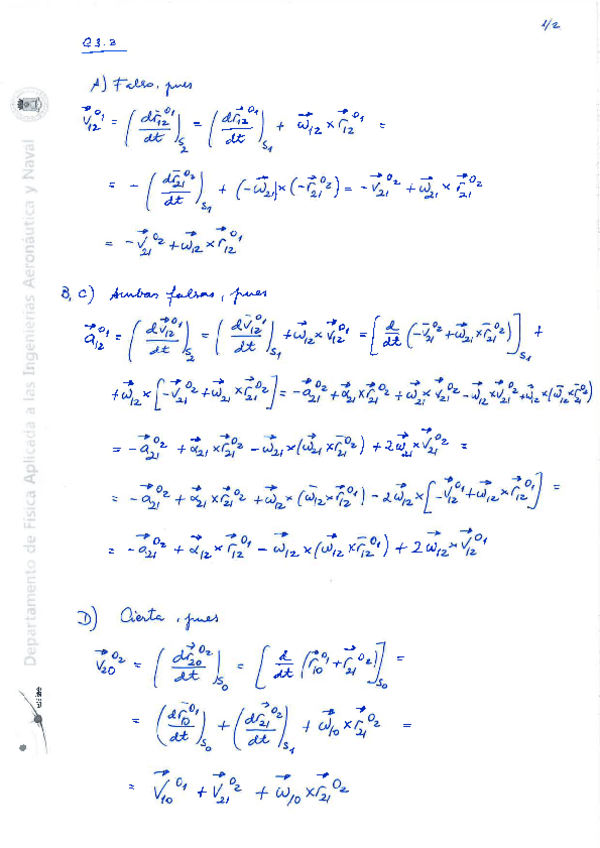 1/2
Q3.3
A) Falso, pues
$\vec{v}_{12}^{O_1} = \left(\frac{d\vec{r}_{12}^{O_1}}{dt}\right)_{S_2} = \left(\frac{d\vec{r}_{12}^{O_1}}{dt}\right)_{S_1} + \vec{\omega}_{12} \times \vec{r}_{12}^{O_1} =$
$= -\left(\frac{d\vec{r}_{21}^{O_2}}{dt}\right)_{S_1} + (-\vec{\omega}_{21}) \times (-\vec{r}_{21}^{O_2}) = -\vec{v}_{21}^{O_2} + \vec{\omega}_{21} \times \vec{r}_{21}^{O_2}$
$= -\vec{v}_{21}^{O_2} + \vec{\omega}_{12} \times \vec{r}_{12}^{O_1}$
B, C) Ambas falsas, pues
$\vec{a}_{12}^{O_1} = \left(\frac{d\vec{v}_{12}^{O_1}}{dt}\right)_{S_2} = \left(\frac{d\vec{v}_{12}^{O_1}}{dt}\right)_{S_1} + \vec{\omega}_{12} \times \vec{v}_{12}^{O_1} = \left[\frac{d}{dt}\left(-\vec{v}_{21}^{O_2} + \vec{\omega}_{21} \times \vec{r}_{21}^{O_2}\right)\right]_{S_1} +$
$+ \vec{\omega}_{12} \times \left[-\vec{v}_{21}^{O_2} + \vec{\omega}_{21} \times \vec{r}_{21}^{O_2}\right] = -\vec{a}_{21}^{O_2} + \vec{\alpha}_{21} \times \vec{r}_{21}^{O_2} + \vec{\omega}_{21} \times \vec{v}_{21}^{O_2} - \vec{\omega}_{12} \times \vec{v}_{21}^{O_2} + \vec{\omega}_{12} \times (\vec{\omega}_{21} \times \vec{r}_{21}^{O_2})$
$= -\vec{a}_{21}^{O_2} + \vec{\alpha}_{21} \times \vec{r}_{21}^{O_2} - \vec{\omega}_{21} \times (\vec{\omega}_{21} \times \vec{r}_{21}^{O_2}) + 2\vec{\omega}_{21} \times \vec{v}_{21}^{O_2} =$
$= -\vec{a}_{21}^{O_2} + \vec{\alpha}_{21} \times \vec{r}_{21}^{O_2} + \vec{\omega}_{12} \times (\vec{\omega}_{12} \times \vec{r}_{12}^{O_1}) - 2\vec{\omega}_{12} \times \left[-\vec{v}_{12}^{O_1} + \vec{\omega}_{12} \times \vec{r}_{12}^{O_1}\right] =$
$= -\vec{a}_{21}^{O_2} + \vec{\alpha}_{12} \times \vec{r}_{12}^{O_1} - \vec{\omega}_{12} \times (\vec{\omega}_{12} \times \vec{r}_{12}^{O_1}) + 2\vec{\omega}_{12} \times \vec{v}_{12}^{O_1}$
D) Cierta, pues
$\vec{v}_{20}^{O_2} = \left(\frac{d\vec{r}_{20}^{O_2}}{dt}\right)_{S_0} = \left[\frac{d}{dt}\left(\vec{r}_{10}^{O_1} + \vec{r}_{21}^{O_2}\right)\right]_{S_0} =$
$= \left(\frac{d\vec{r}_{10}^{O_1}}{dt}\right)_{S_0} + \left(\frac{d\vec{r}_{21}^{O_2}}{dt}\right)_{S_1} + \vec{\omega}_{10} \times \vec{r}_{21}^{O_2} =$
$= \vec{v}_{10}^{O_1} + \vec{v}_{21}^{O_2} + \vec{\omega}_{10} \times \vec{r}_{21}^{O_2}$
Departamento de Física Aplicada a las Ingenierías Aeronáutica y Naval